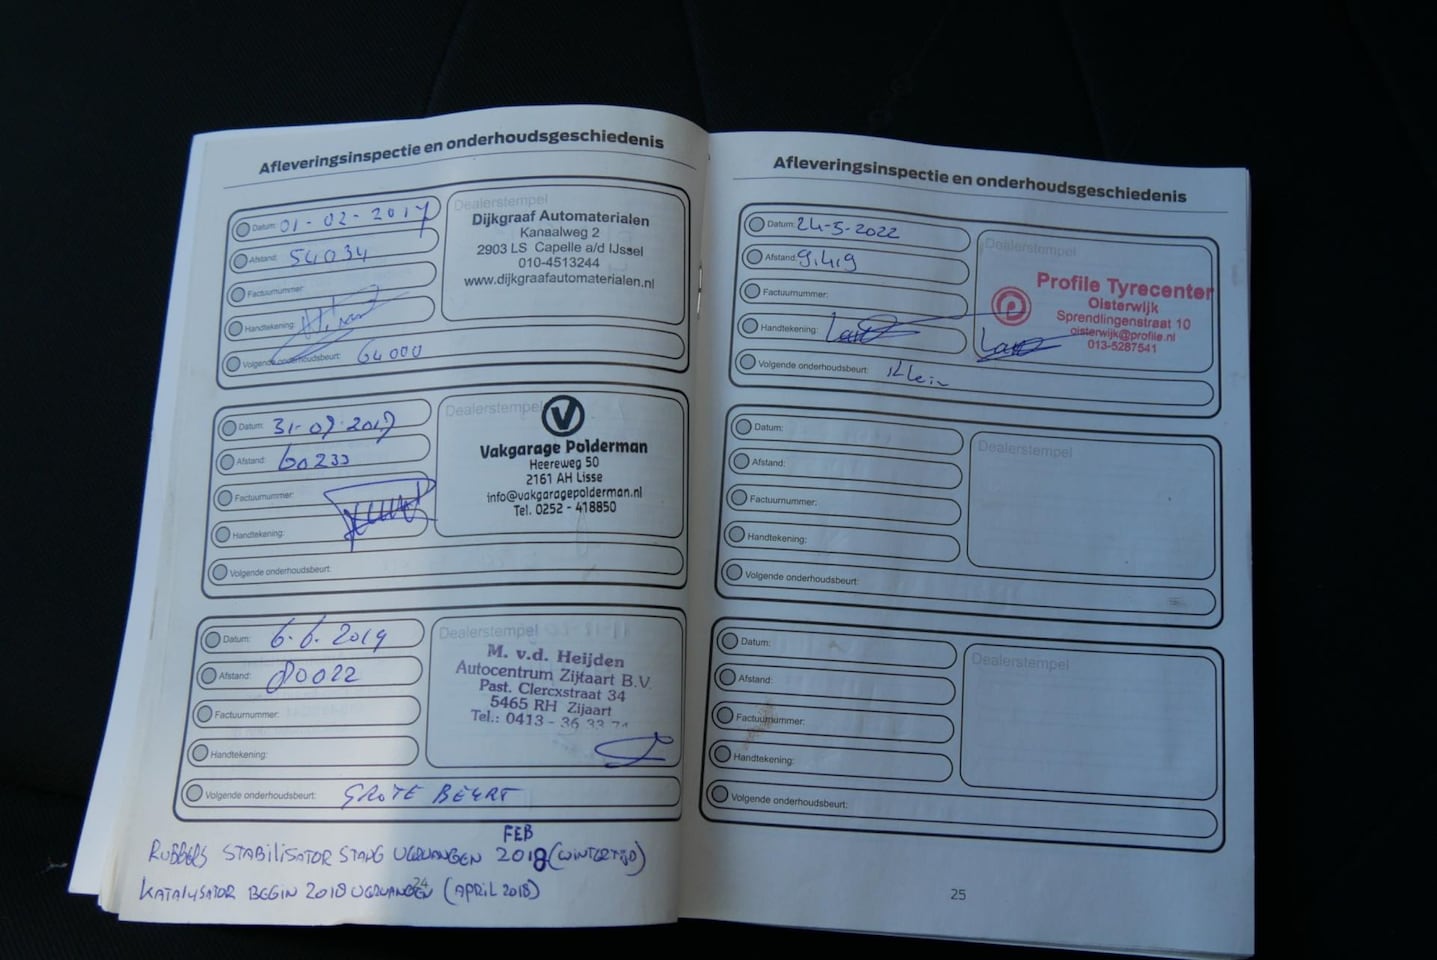 Afleveringsinspectie en onderhoudsgeschiedenis
Datum: 01-02-2017
Afstand: 54034
Factuurnummer:
Handtekening:
Volgende onderhoudsbeurt: 64000
Dealerstempel
Dijkgraaf Automaterialen
Kanaalweg 2
2903 LS Capelle a/d IJssel
010-4513244
www.dijkgraafautomaterialen.nl
Datum: 31-07-2017
Afstand: 60233
Factuurnummer:
Handtekening:
Volgende onderhoudsbeurt:
Dealerstempel
Vakgarage Polderman
Heereweg 50
2161 AH Lisse
info@vakgaragepolderman.nl
Tel. 0252 - 418850
Datum: 6.6.2019
Afstand: 80022
Factuurnummer:
Handtekening:
Volgende onderhoudsbeurt: GROTE BEURT
Dealerstempel
M. v.d. Heijden
Autocentrum Zijtaart B.V.
Past. Clercxstraat 34
5465 RH Zijaart
Tel.: 0413 - 36 33 74
FEB
RUBBERS STABILISATOR STANG VERVANGEN 2018 (WINTERTIJD)
KATALYSATOR BEGIN 2018 VERVANGEN (APRIL 2018)
24
Afleveringsinspectie en onderhoudsgeschiedenis
Datum: 24-5-2022
Afstand: 9.419
Factuurnummer:
Handtekening:
Volgende onderhoudsbeurt: Klein
Dealerstempel
Profile Tyrecenter
Oisterwijk
Sprendlingenstraat 10
oisterwijk@profile.nl
013-5287541
Datum:
Afstand:
Factuurnummer:
Handtekening:
Volgende onderhoudsbeurt:
Dealerstempel
Datum:
Afstand:
Factuurnummer:
Handtekening:
Volgende onderhoudsbeurt:
Dealerstempel
25